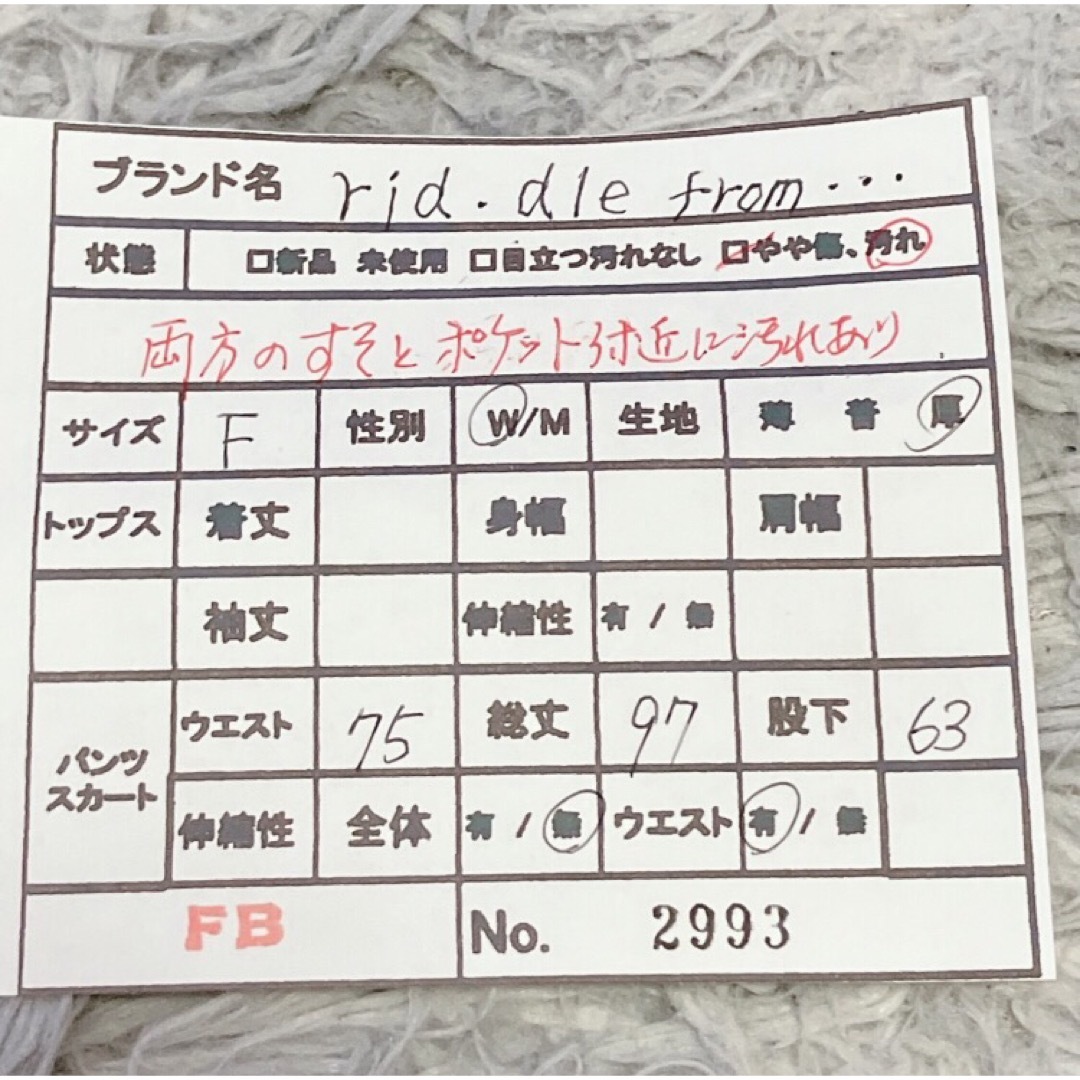 ブランド名 rid.dle from...
状態 □新品 未使用 □目立つ汚れなし □やや傷、汚れ
両方のすそとポケット付近に汚れあり
サイズ F 性別 W/M 生地 薄 普 厚
トップス 着丈 身幅 肩幅
袖丈 伸縮性 有 / 無
パンツ スカート ウエスト 75 総丈 97 股下 63
伸縮性 全体 有 / 無 ウエスト 有 / 無
FB No. 2993